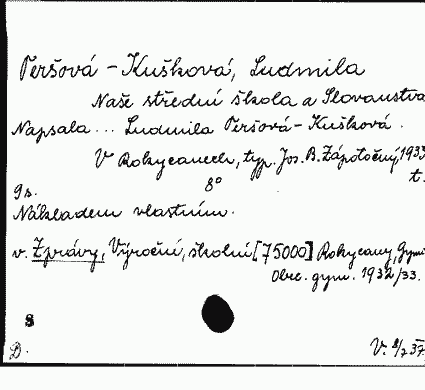 Peršová - Kušková, Ludmila
Naše střední škola a Slovanstva
Napsala... Ludmila Peršová - Kušková.
V Rokycanech, typ. Jos. B. Zápotočný, 1933
t.
9 s. 8°
Nákladem vlastním.
v. Zprávy, Výroční, školní [75000] Rokycany, Gym
Obec. gym. 1932/33.
8
D. V.